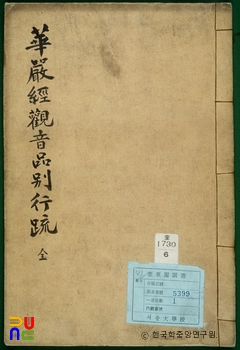 華嚴經觀音品別行疏 全
奎
1730
6
奎章圖書
5399
1
서울大學校
PUNC
한국학중앙연구원